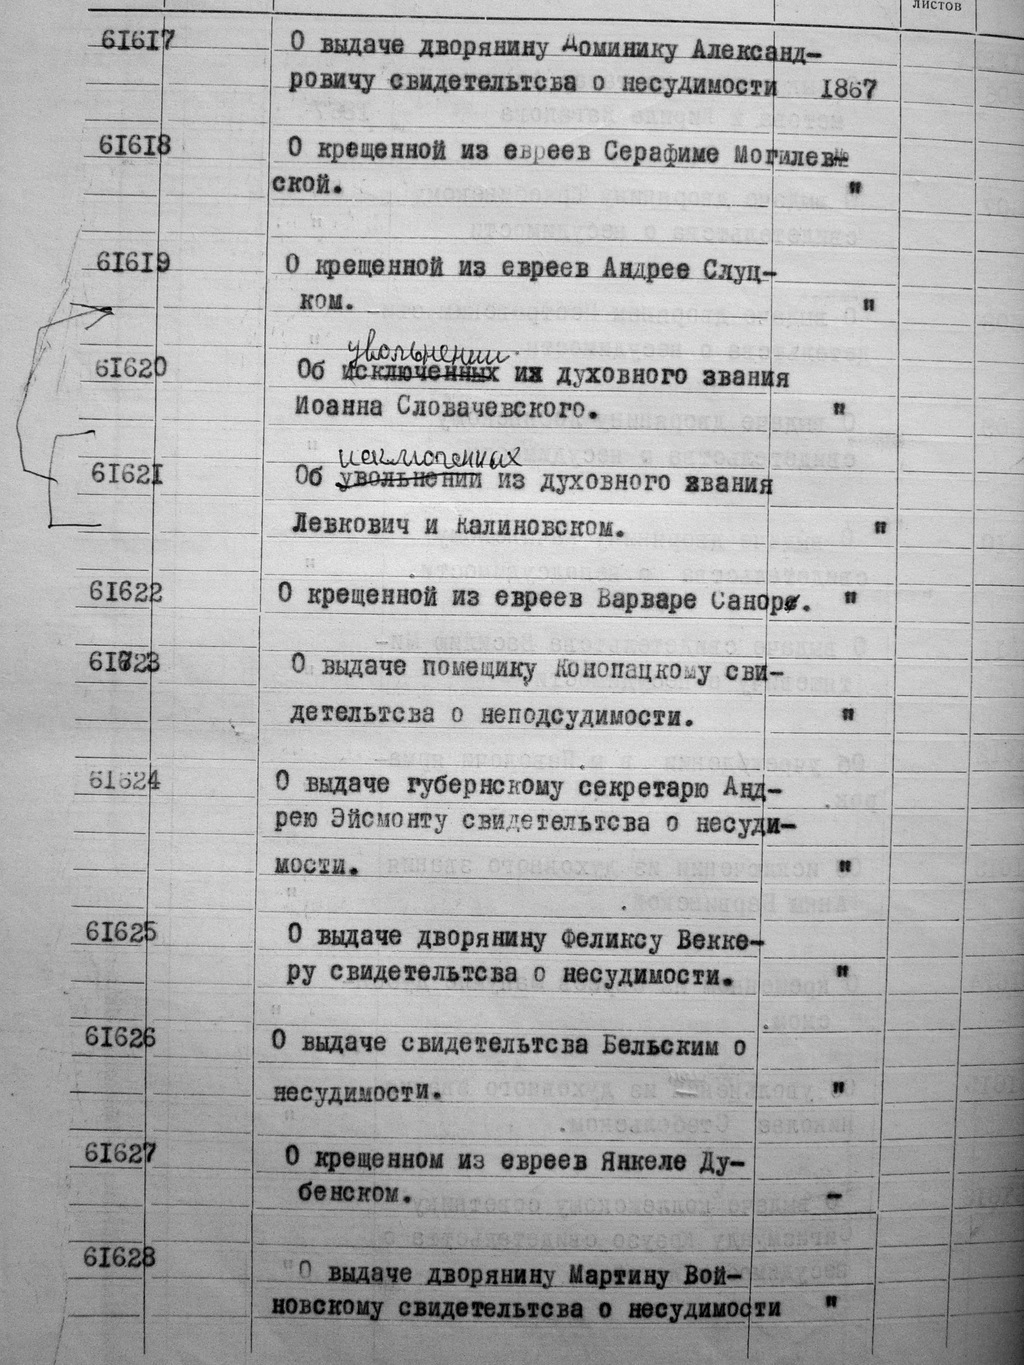 листов
61617 О выдаче дворянину Доминику Александ-
ровичу свидетельтсва о несудимости 1867
61618 О крещенной из евреев Серафиме Могилев-
ской. "
61619 О крещенной из евреев Андрее Слуц-
ком. "
увольнении
61620 Об исключенных их духовного звания
Иоанна Словачевского. "
исключенных
61621 Об увольнении из духовного звания
Левкович и Калиновском. "
61622 О крещенной из евреев Варваре Санор. "
61623 О выдаче помещику Конопацкому сви-
детельтсва о неподсудимости. "
61624 О выдаче губернскому секретарю Анд-
рею Эйсмонту свидетельтсва о несуди-
мости. "
61625 О выдаче дворянину Феликсу Векке-
ру свидетельтсва о несудимости. "
61626 О выдаче свидетельтсва Бельским о
несудимости. "
61627 О крещенном из евреев Янкеле Ду-
бенском. -
61628 О выдаче дворянину Мартину Вой-
новскому свидетельтсва о несудимости "